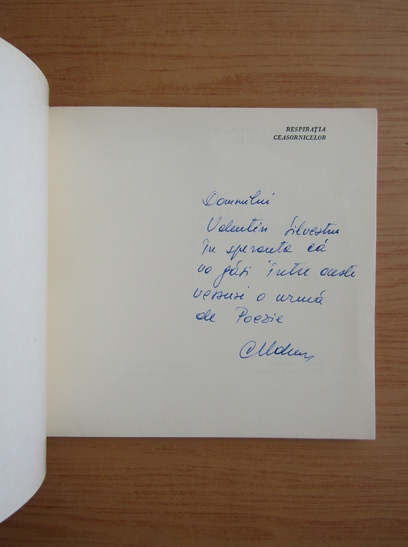 RESPIRAȚIA
CEASORNICELOR
Domnului
Valentin Silvestru
în speranța că
va găsi între aceste
versuri o urmă
de Poezie